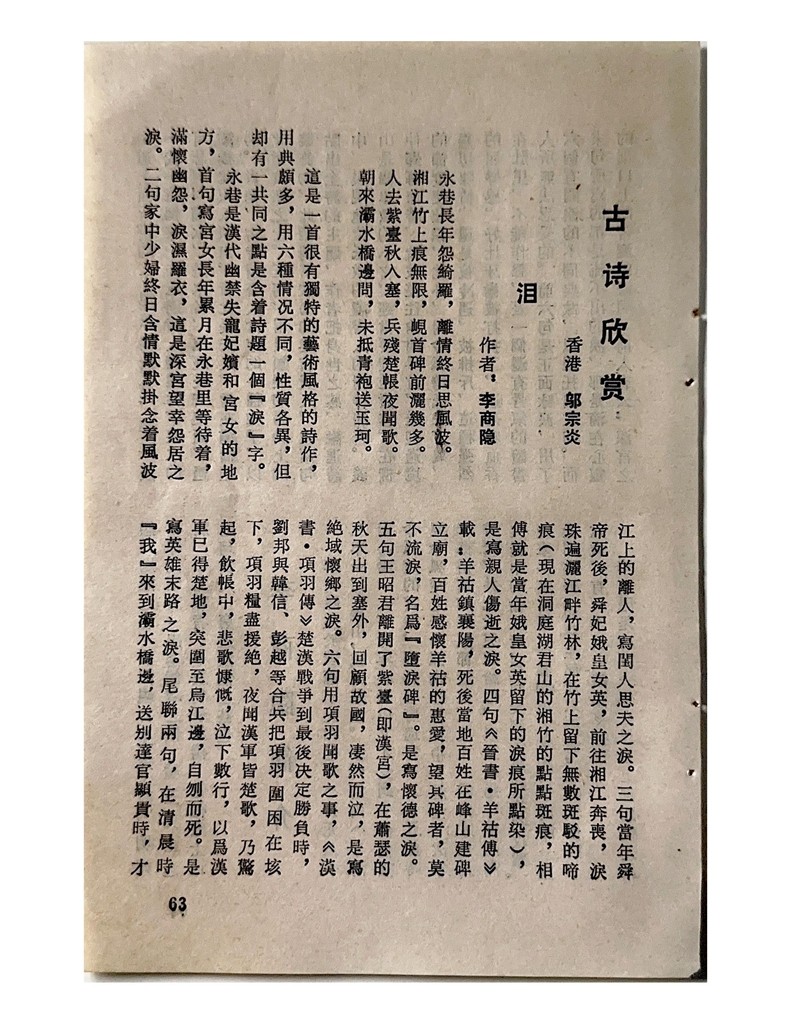 古诗欣赏
香港 邬宗炎
泪
作者：李商隐
永巷長年怨綺羅，離情終日思風波。
湘江竹上痕無限，峴首碑前灑幾多。
人去紫臺秋入塞，兵殘楚帳夜聞歌。
朝來灞水橋邊問，未抵青袍送玉珂。
這是一首很有獨特的藝術風格的詩作，
用典頗多，用六種情况不同，性質各異，但
却有一共同之點是含着詩題一個『淚』字。
永巷是漢代幽禁失寵妃嬪和宮女的地
方，首句寫宮女長年累月在永巷里等待着，
滿懷幽怨，淚濕羅衣，這是深宮望幸怨居之
淚。二句家中少婦終日含情默默掛念着風波
江上的離人，寫閨人思夫之淚。三句當年舜
帝死後，舜妃娥皇女英，前往湘江奔喪，淚
珠遍灑江畔竹林，在竹上留下無數斑駁的啼
痕（現在洞庭湖君山的湘竹的點點斑痕，相
傳就是當年娥皇女英留下的淚痕所點染），
是寫親人傷逝之淚。四句《晉書·羊祜傳》
載：羊祜鎮襄陽，死後當地百姓在峰山建碑
立廟，百姓感懷羊祜的惠愛，望其碑者，莫
不流淚，名爲『墮淚碑』。是寫懷德之淚。
五句王昭君離開了紫臺（即漢宮），在蕭瑟的
秋天出到塞外，回顧故國，凄然而泣，是寫
絶域懷鄉之淚。六句用項羽聞歌之事，《漢
書·項羽傳》楚漢戰爭到最後决定勝負時，
劉邦與韓信、彭越等合兵把項羽圍困在垓
下，項羽糧盡援絶，夜聞漢軍皆楚歌，乃驚
起，飲帳中，悲歌慷慨，泣下數行，以爲漢
軍已得楚地，突圍至烏江邊，自刎而死。是
寫英雄末路之淚。尾聯兩句，在清晨時
『我』來到灞水橋邊，送别達官顯貴時，才
63